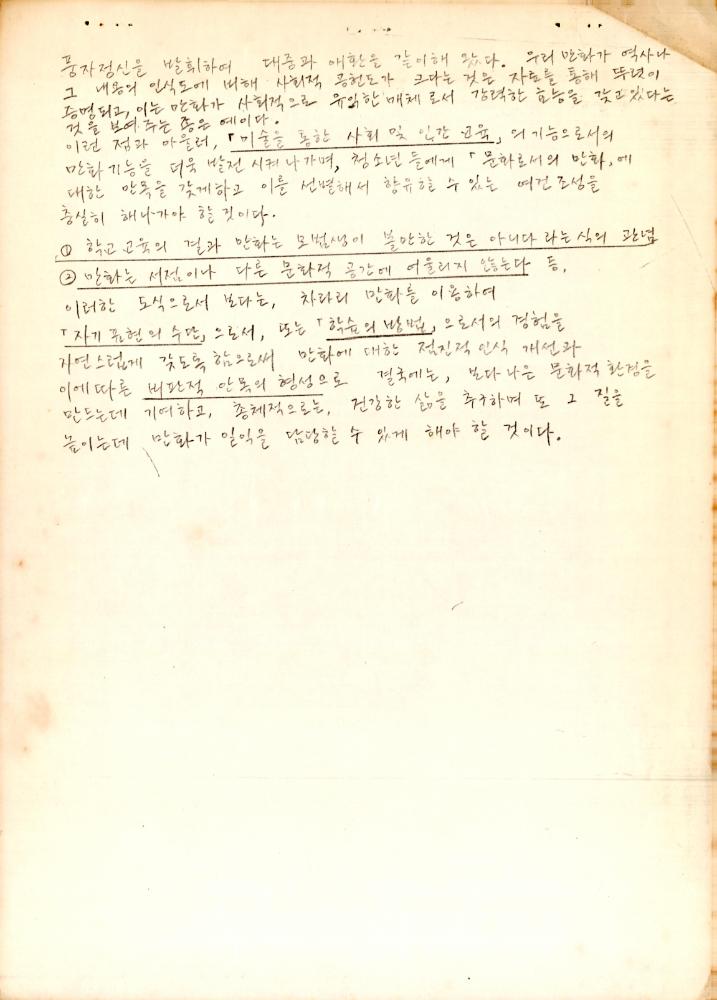 풍자정신을 발휘하여 대중과 애환을 같이해 왔다. 우리 만화가 역사나
그 내용의 인식도에 비해 사회적 공헌도가 크다는 것은 자료를 통해 뚜렷이
증명되고, 이는 만화가 사회적으로 유익한 매체로서 강력한 효능을 갖고 있다는
것을 보여 주는 좋은 예이다.
이런 점과 아울러, 「미술을 통한 사회 및 인간 교육」의 기능으로서의
만화 기능을 더욱 발전 시켜 나가며, 청소년들에게 「문화로서의 만화」에
대한 안목을 갖게하고 이를 선별해서 향유할 수 있는 여건 조성을
충실히 해나가야 할 것이다.
① 학교 교육의 결과 만화는 모범생이 볼만한 것은 아니다 라는 식의 관념
② 만화는 서점이나 다른 문화적 공간에 어울리지 않는다 등,
이러한 도식으로서 보다는, 차라리 만화를 이용하여
「자기 표현의 수단」으로서, 또는 「학습의 방법」으로서의 경험을
자연스럽게 갖도록 함으로써 만화에 대한 점진적 인식 개선과
이에 따른 비판적 안목의 형성으로 결국에는, 보다 나은 문화적 환경을
만드는데 기여하고, 총체적으로는, 건강한 삶을 추구하며 또 그 질을
높이는데 만화가 일익을 담당할 수 있게 해야 할 것이다.